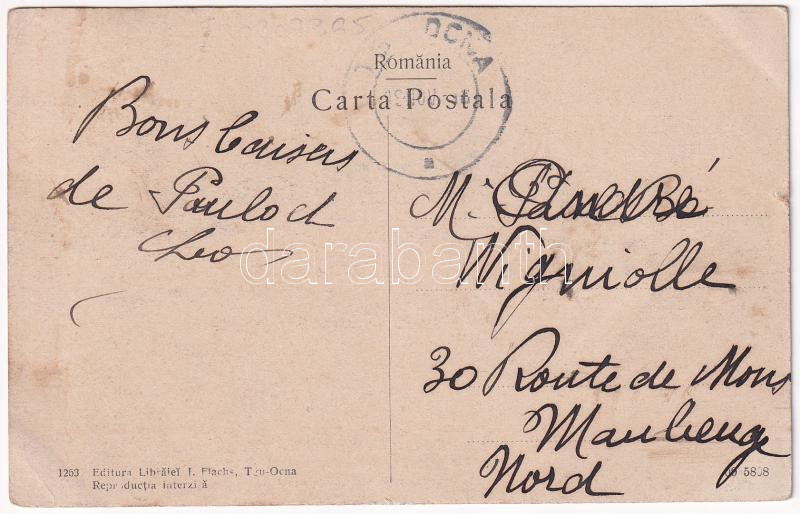 România
Carta Postala
OCNA
Bons baisers
de Paul
Leo
M.
Vigniolle
30 Route de Mons
Maubeuge
Nord
darabanth
1263 Editura Librăieĭ I. Flachs, Tgu-Ocna
Reproducția interzisă